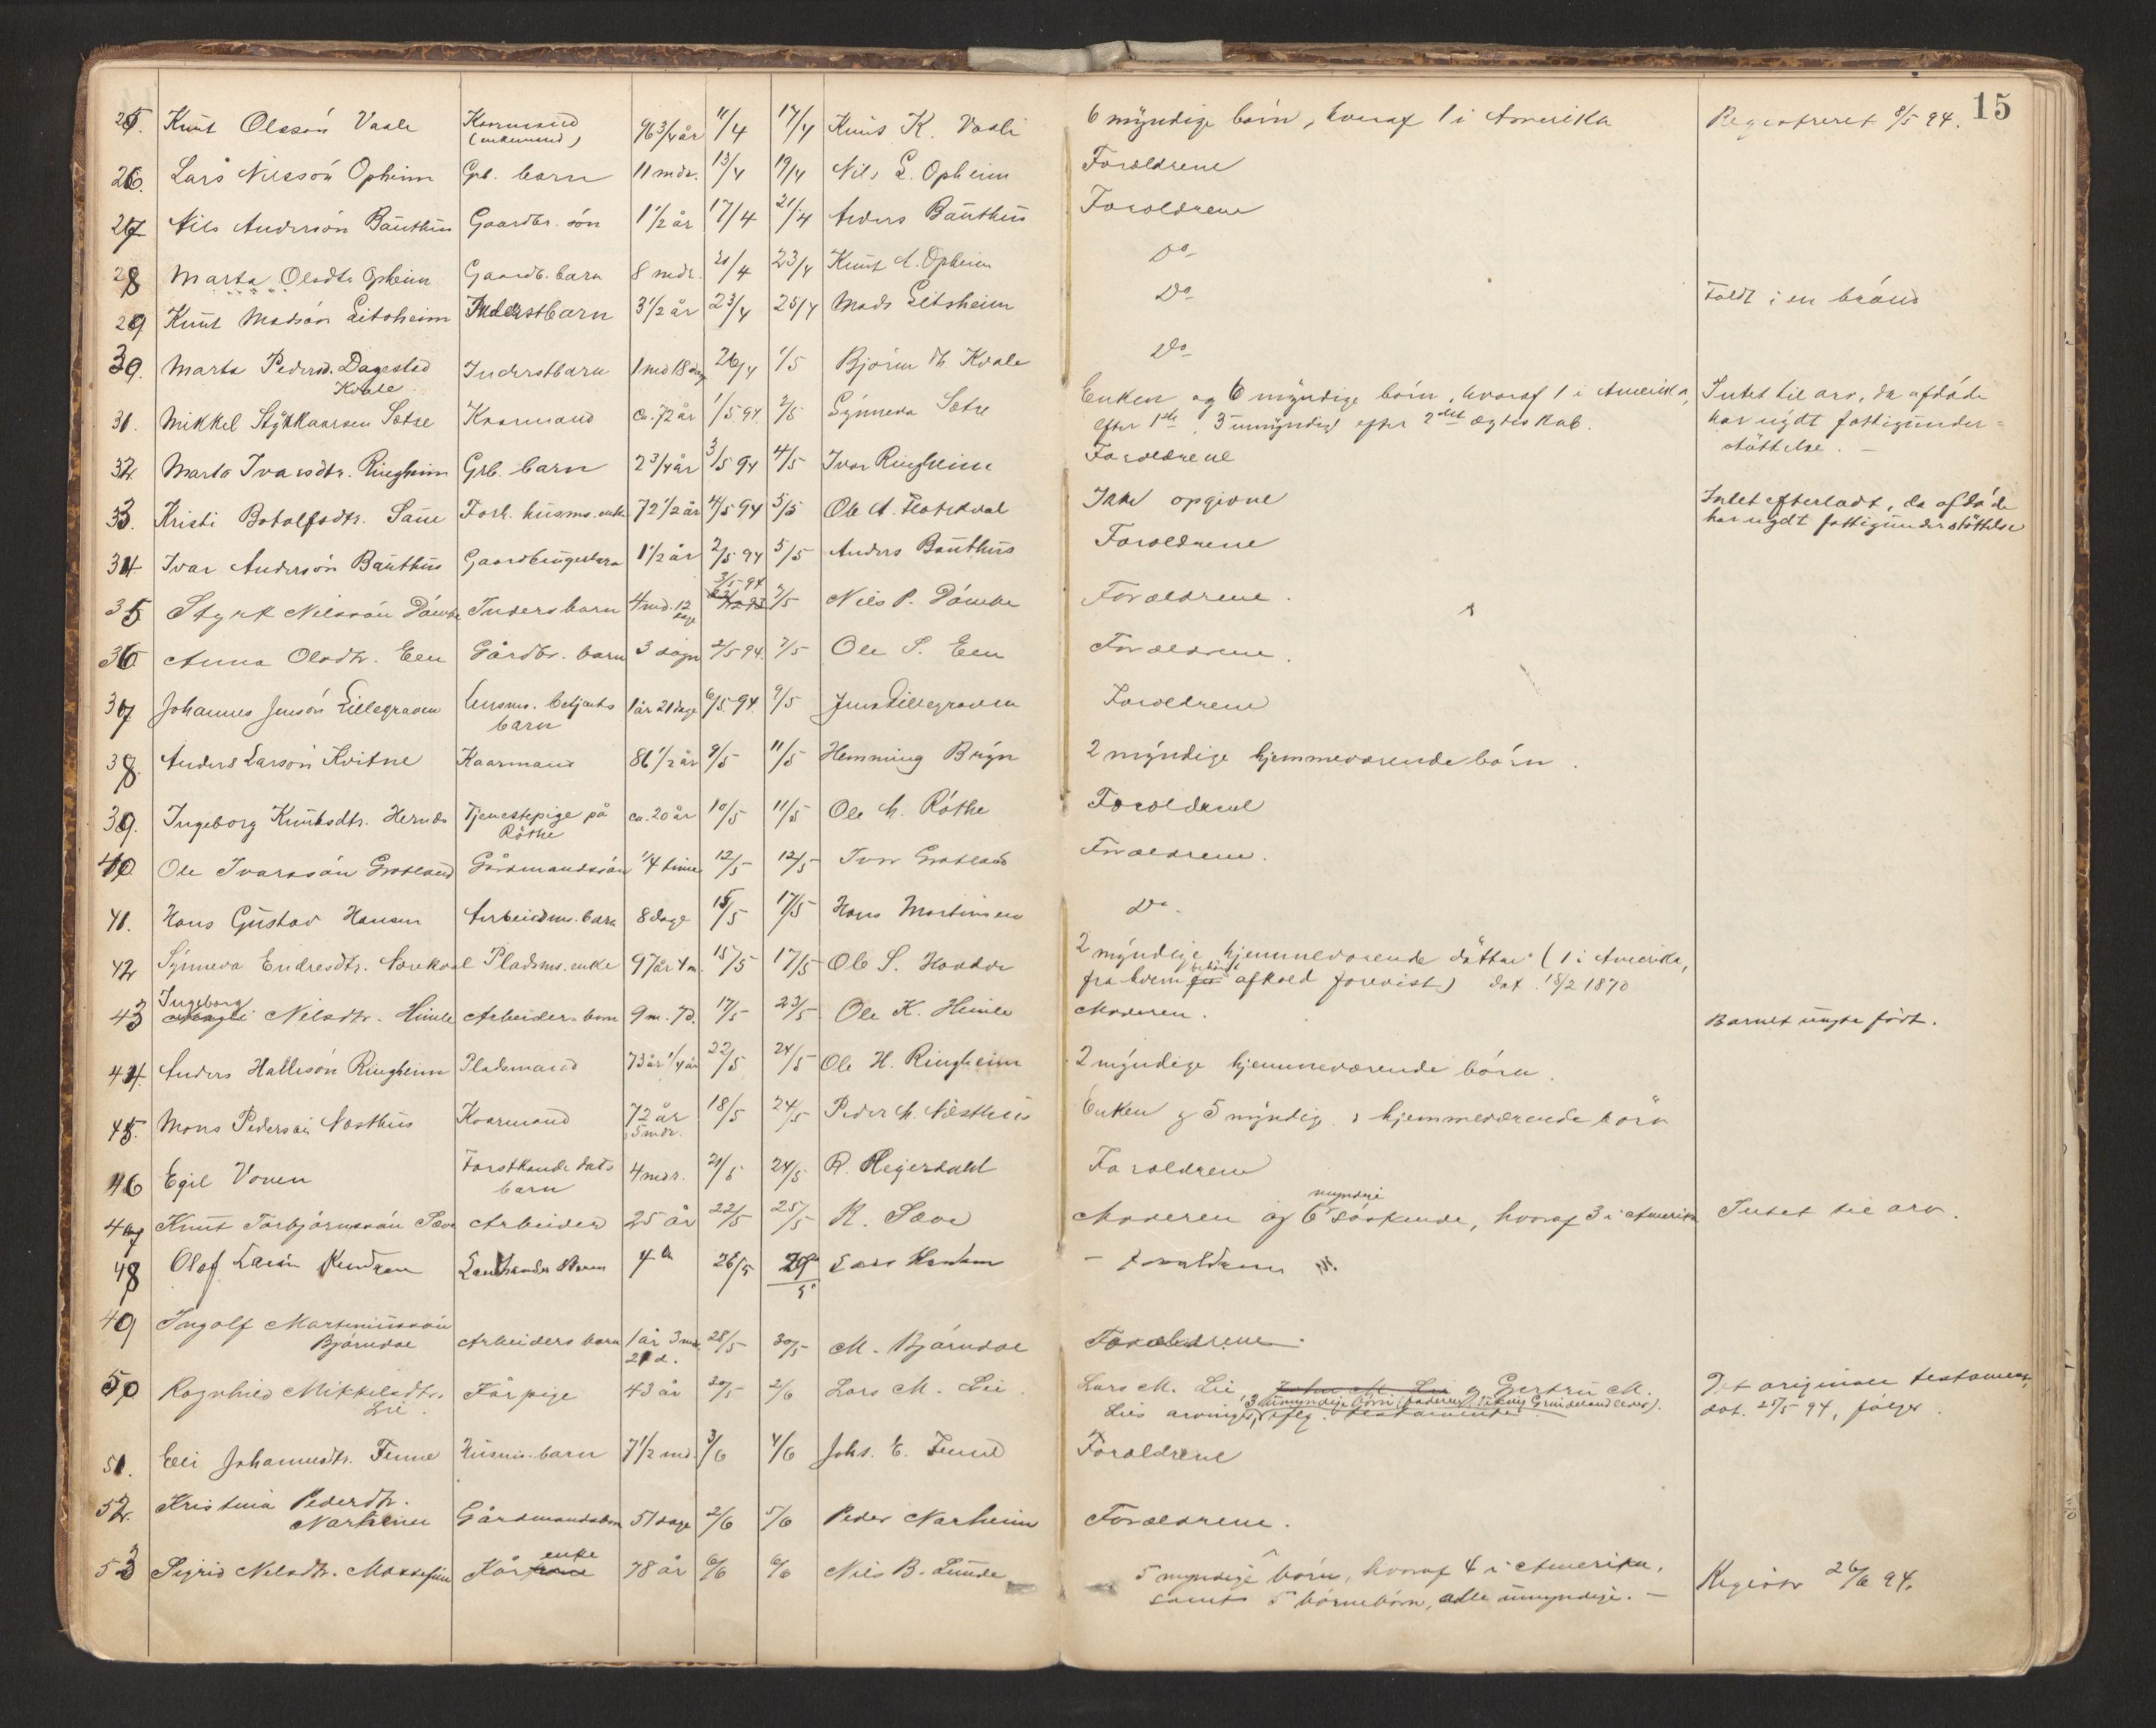 15
25. Knut Olsson Vaale Kaarmand 96 3/4 år 11/4 17/4 Knut K. Vaale 6 myndige börn, hvoraf 1 i Amerika Registreret 8/5 94.
(enkemand)
26. Lars Nilsson Opheim Grb. barn 11 mdr. 13/4 19/4 Nils L. Opheim Forældrene
27 Nils Anderson Bauthus Gaardbr. sön 1 1/2 år 17/4 21/4 Anders Bauthus Forældrene
28 Marta Olsdtr Opheim Gaardb. barn 8 mdr. 20/4 23/4 Knut A. Opheim Do
29 Knut Madsön Leitsheim Inderstbarn 3 1/2 år 23/4 25/4 Mads Leitsheim Do Faldt i en brönd
30. Marta Pedersd. Dagestad Inderstbarn 1 md 18 dag 26/4 1/5 Björne Kvale Do
Kvale
31. Mikkel Styrkaarsen Sætre Kaarmand ca. 72 år 1/5 94. 2/5 Synneva Sætre Enken og 6 myndige börn, hvoraf 1 i Amerika, Intet til arv, da afdöde
efter 1ste, 3 umyndige efter 2det ægteskab. har nydt fattigunder=
stöttelse. -
32. Marta Ivarsdtr. Ringheim Grb. barn 2 3/4 år 3/5 94 4/5 Ivar Ringheim Forældrene
33. Kristi Botolfsdtr. Saue Forh. husms. enke 72 1/2 år 4/5 94 5/5 Ole A. Flatekval Ikke opgivne Intet efterladt, da afdöde
har nydt fattigunderstöttelse
34 Ivar Andersön Bauthus Gaardbrugerbarn 1 1/2 år 2/5 94 5/5 Anders Bauthus Forældrene
35 Styrk Nilssön Dömbe Indersbarn 4 md. 12 dage 3/5 94 7/5 Nils P. Dömbe Forældrene.
36 Anna Olsdtr. Een Gårdbr. barn 3 dögn 2/5 94. 7/5 Ole S. Een Forældrene.
37 Johannes Jensön Lillegraven Lensms. betjents 1 år 21 dage 6/5. 94. 9/5 Jens Lillegraven Forældrene
barn
38. Anders Larsön Kvitne Kaarmand 86 1/2 år 9/5 11/5 Hemming Bryn 2 myndige hjemmeværende börn.
39. Ingeborg Knutsdtr. Hernes Tjenestepige på ca. 20 år 10/5 11/5 Ole M. Röthe Forældrene
Röthe
40 Ole Ivarssön Grotland Gårdmandssön 1/4 time 12/5 12/5 Ivar Grotland Forældrene.
41. Hans Gustav Hansen Arbeidsm. barn 8 dage 15/5 17/5 Hans Martinsen Do.
42 Synneva Endresdtr. Norekval Pladsms. enke 97 år 4 m. 15/5 17/5 Ole S. 2 myndige hjemmeværende döttre (1 i Amerika,
fra hvem behörigt afkald forevist) dat. 18/2 1870
43 Ingeborg Nilsdtr. Himle Arbeiders barn 9 m. 7 d. 17/5 23/5 Ole K. Himle Moderen. Barnet uægte födt.
44. Anders Hallesön Ringheim Pladsmand 73 år 1/4 år 22/5 24/5 Ole H. Ringheim 2 myndige hjemmeværende börn.
45. Mons Pedersön Næsthus Kaarmand 72 år 18/5 24/5 Peder M. Næsthus Enken & 5 myndige, hjemmeværende börn
5 mdr.
46 Egil Vonen Forstkandidats 4 mdr. 21/5 24/5 R. Regerdahl Forældrene
barn
47 Knut Torbjörnssön Sæve Arbeider 25 år 22/5 25/5 K. Sæve Moderen og 6 myndige söskende, hvoraf 3 i Amerika Intet til arv.
48 Olaf 26/5 29/5 Lars - forældrene
49 Ingolf Martiniussön
Björndal Arbeiders barn 1 år 3 md. 28/5 30/5 M. Björndal Forældrene.
21 d.
50 Ragnhild Mikkelsdtr. Kårpige 43 år 30/5 2/6 Lars M. Lie. Lars M. Lie, John M. Lie og Gjertru M. Det originale testament,
Lie. Lies arvinger, 3 umyndige börn ifölg. testamente dat. 25/5 94, fölger.
51. Eli Johannesdtr. Finne Husms. barn 7 1/2 md. 3/6 4/6 Johs. E. Finne Forældrene
52. Kristina Pedersdtr.
Narheim Gårdmandsbarn 51 dage 2/6 5/6 Peder Narheim Forældrene.
53 Sigrid Nelsdtr. Mossefin Kår enke 78 år 6/6 6/6 Nils B. Lunde 5 myndige börn, hvoraf 4 i Amerika, Registr 26/6 94.
samt 5 börnebörn, alle umyndige. -